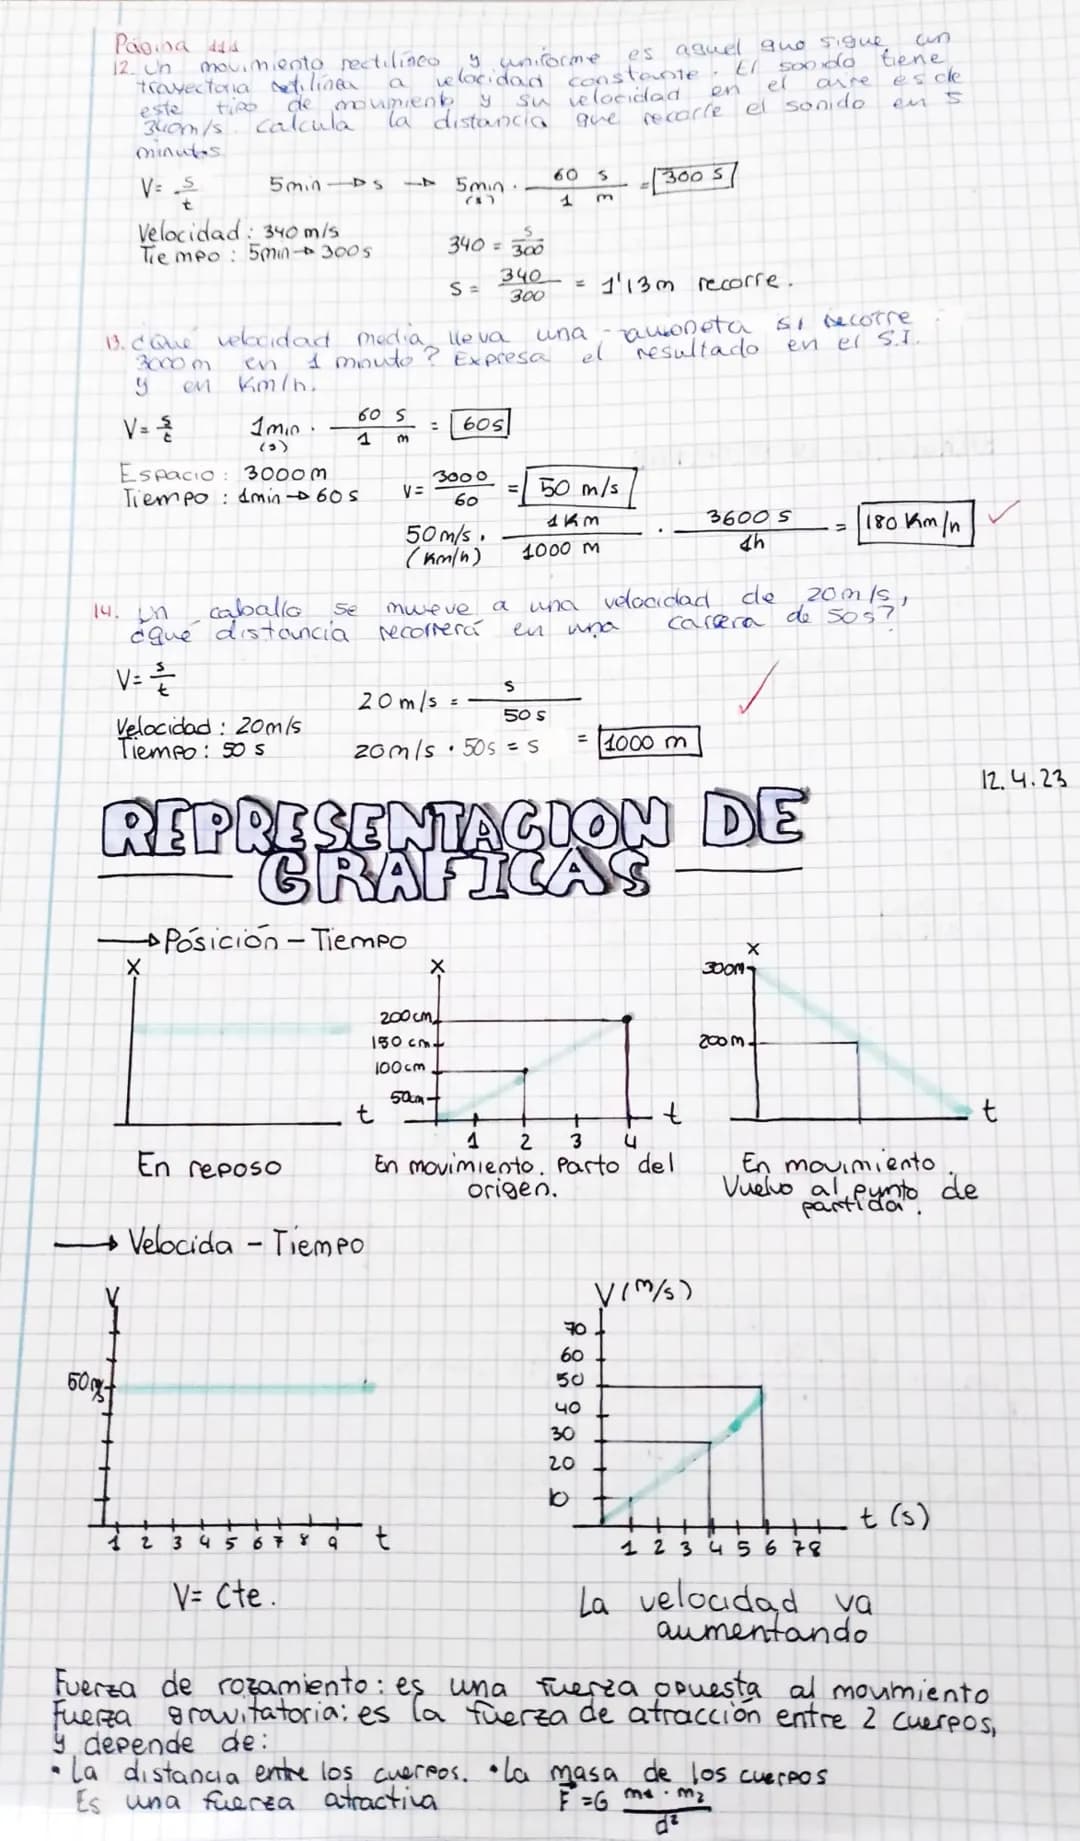 Página 111
12. Un movimiento rectilíneo y uniforme es aquel que sigue un
trayectoria rectilínea a velocidad constante. El sonido tiene
este tipo de movimiento y su velocidad en el aire es de
340m/s. Calcula la distancia que recorre el sonido en 5
minutos
V= s/t 5min → s → 5min (s) · 60 s / 1 m = 300 s
Velocidad: 340 m/s
Tiempo: 5min → 300s
340 = s/300
s = 340/300 = 1'13m recorre.
13. ¿Qué velocidad media lleva una si recorre
3000m en 1 minuto? Expresa el resultado en el S.I.
y en Km/h.
V= s/t 1min (s) · 60 s / 1 m = 60s
Espacio: 3000m
Tiempo: 1min → 60s
V= 3000/60 = 50 m/s
50m/s (Km/h) · 1Km / 1000 m · 3600 s / 1h = 180 Km/h
14. Un caballo se mueve a una velocidad de 20m/s,
¿qué distancia recorrerá en una carrera de 50s?
V= s/t
20m/s = s / 50 s
Velocidad: 20m/s
Tiempo: 50 s
20m/s · 50s = s = 1000 m
12.4.23
REPRESENTACION DE
GRAFICAS
→ Posición - Tiempo
x
t
En reposo
x
200cm
150 cm
100cm
50cm
1 2 3 4
t
En movimiento. Parto del
origen.
x
300m
200m
t
En movimiento.
Vuelvo al punto de
partida.
→ Velocida - Tiempo
V
50m/s
1 2 3 4 5 6 7 8 9 t
V= Cte.
V(m/s)
70
60
50
40
30
20
10
1 2 3 4 5 6 7 8
t (s)
La velocidad va
aumentando
Fuerza de rozamiento: es una fuerza opuesta al movimiento
Fuerza gravitatoria: es la fuerza de atracción entre 2 cuerpos,
y depende de:
• La distancia entre los cuerpos. • La masa de los cuerpos
Es una fuerza atractiva F⃗ = G m1 · m2 / d²